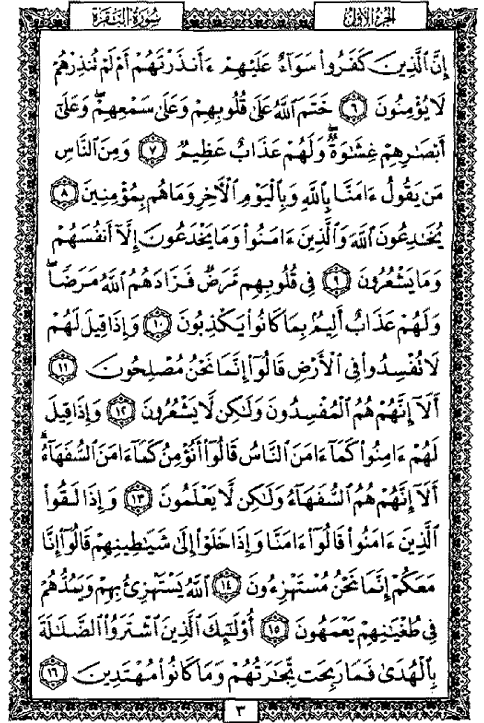 سُورَةُ البَقَرَةِ الجُزءُ الأَوَّلُ
إِنَّ ٱلَّذِينَ كَفَرُوا۟ سَوَآءٌ عَلَيْهِمْ ءَأَنذَرْتَهُمْ أَمْ لَمْ تُنذِرْهُمْ
لَا يُؤْمِنُونَ ٦ خَتَمَ ٱللَّهُ عَلَىٰ قُلُوبِهِمْ وَعَلَىٰ سَمْعِهِمْ ۖ وَعَلَىٰٓ
أَبْصَـٰرِهِمْ غِشَـٰوَةٌ ۖ وَلَهُمْ عَذَابٌ عَظِيمٌ ٧ وَمِنَ ٱلنَّاسِ
مَن يَقُولُ ءَامَنَّا بِٱللَّهِ وَبِٱلْيَوْمِ ٱلْـَٔاخِرِ وَمَا هُم بِمُؤْمِنِينَ ٨
يُخَـٰدِعُونَ ٱللَّهَ وَٱلَّذِينَ ءَامَنُوا۟ وَمَا يَخْدَعُونَ إِلَّآ أَنفُسَهُمْ
وَمَا يَشْعُرُونَ ٩ فِى قُلُوبِهِم مَّرَضٌ فَزَادَهُمُ ٱللَّهُ مَرَضًا ۖ
وَلَهُمْ عَذَابٌ أَلِيمٌۢ بِمَا كَانُوا۟ يَكْذِبُونَ ١٠ وَإِذَا قِيلَ لَهُمْ
لَا تُفْسِدُوا۟ فِى ٱلْأَرْضِ قَالُوٓا۟ إِنَّمَا نَحْنُ مُصْلِحُونَ ١١
أَلَآ إِنَّهُمْ هُمُ ٱلْمُفْسِدُونَ وَلَـٰكِن لَّا يَشْعُرُونَ ١٢ وَإِذَا قِيلَ
لَهُمْ ءَامِنُوا۟ كَمَآ ءَامَنَ ٱلنَّاسُ قَالُوٓا۟ أَنُؤْمِنُ كَمَآ ءَامَنَ ٱلسُّفَهَآءُ ۗ
أَلَآ إِنَّهُمْ هُمُ ٱلسُّفَهَآءُ وَلَـٰكِن لَّا يَعْلَمُونَ ١٣ وَإِذَا لَقُوا۟
ٱلَّذِينَ ءَامَنُوا۟ قَالُوٓا۟ ءَامَنَّا وَإِذَا خَلَوْا۟ إِلَىٰ شَيَـٰطِينِهِمْ قَالُوٓا۟ إِنَّا
مَعَكُمْ إِنَّمَا نَحْنُ مُسْتَهْزِءُونَ ١٤ ٱللَّهُ يَسْتَهْزِئُ بِهِمْ وَيَمُدُّهُمْ
فِى طُغْيَـٰنِهِمْ يَعْمَهُونَ ١٥ أُو۟لَـٰٓئِكَ ٱلَّذِينَ ٱشْتَرَوُا۟ ٱلضَّلَـٰلَةَ
بِٱلْهُدَىٰ فَمَا رَبِحَت تِّجَـٰرَتُهُمْ وَمَا كَانُوا۟ مُهْتَدِينَ ١٦
٣